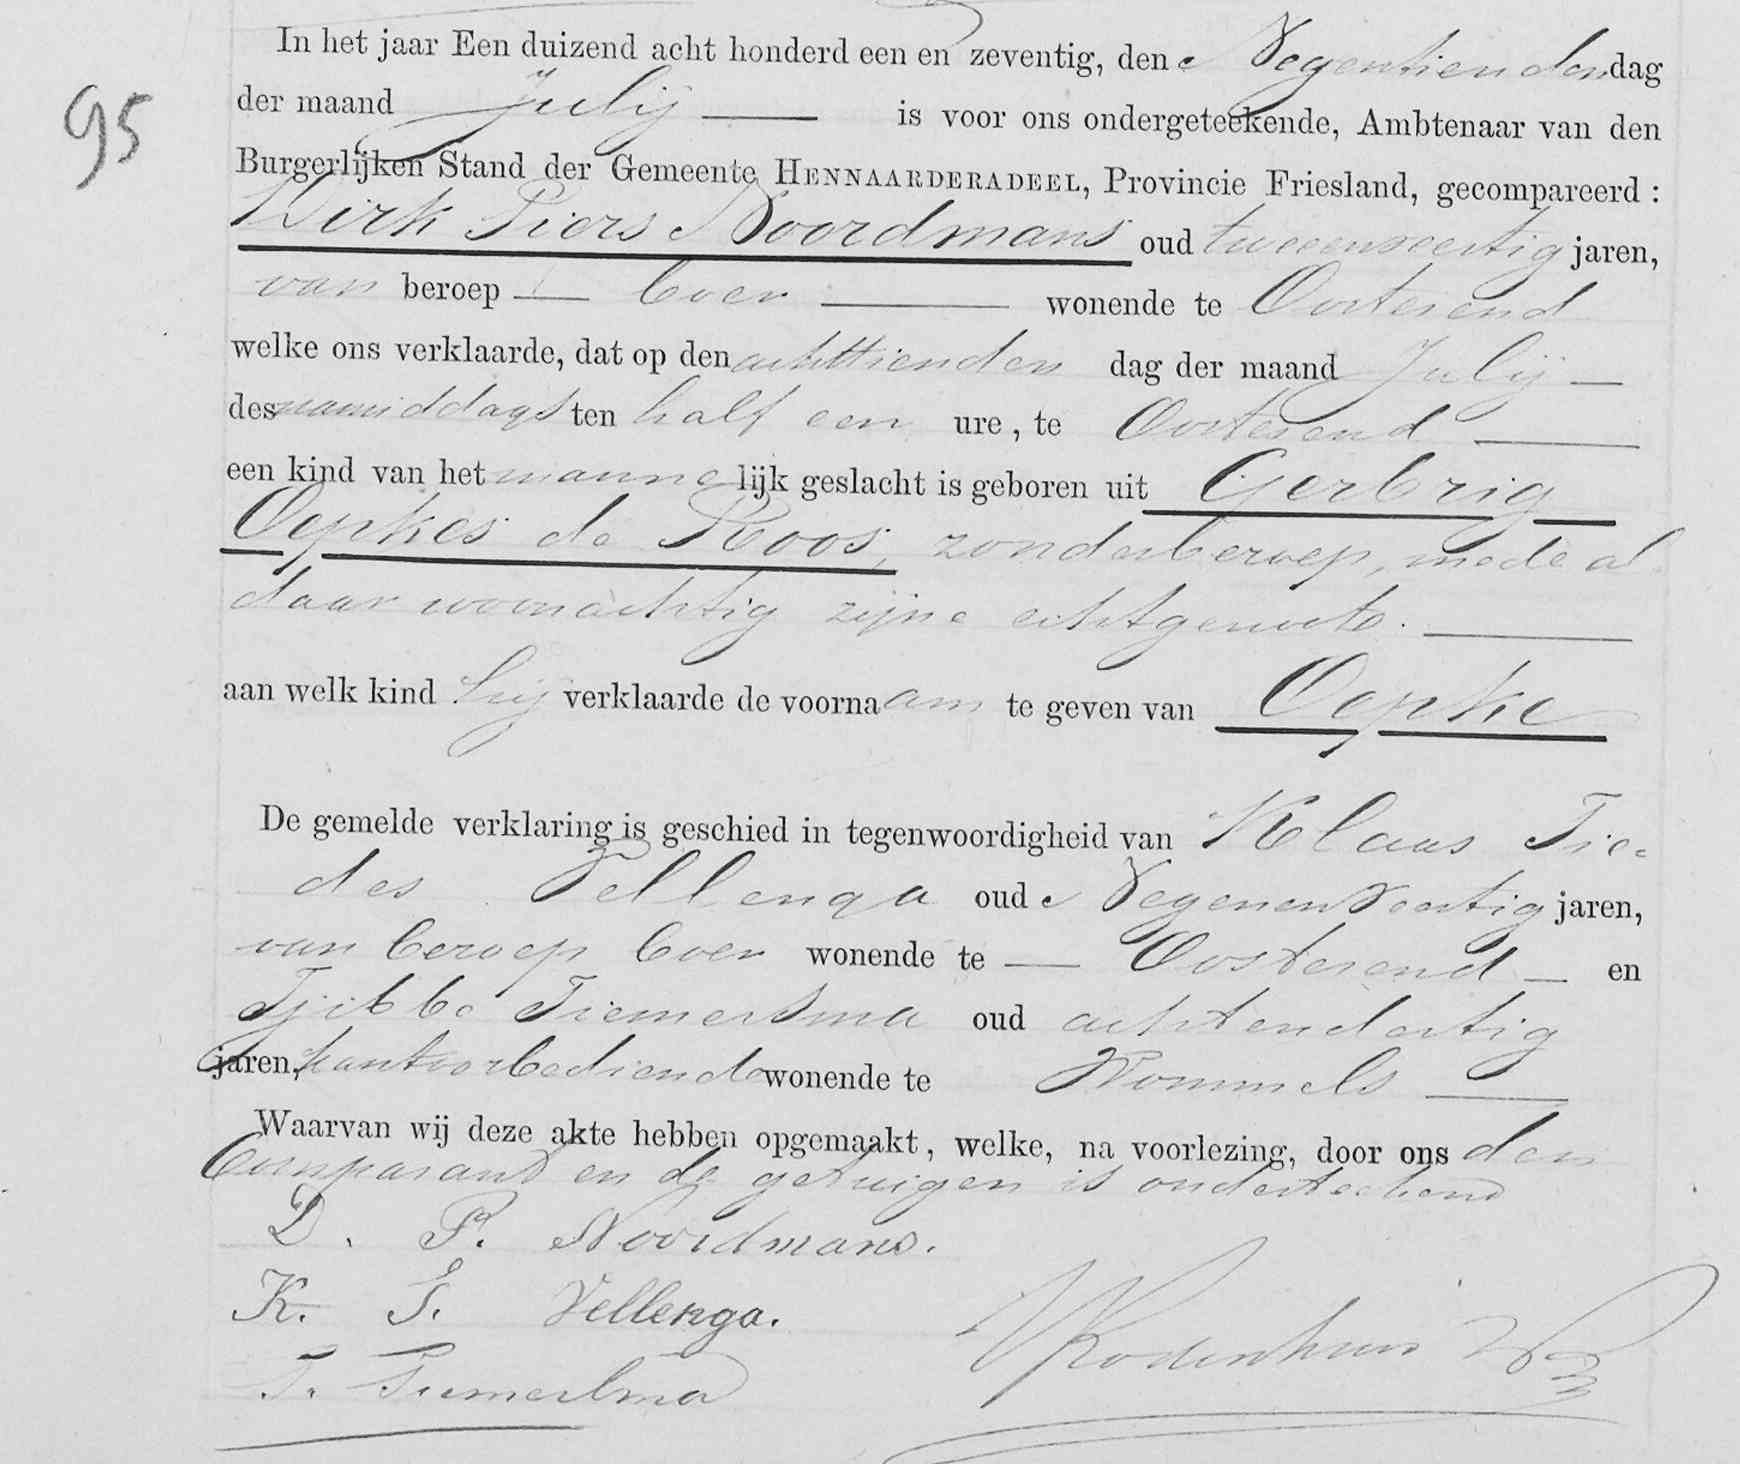 95
In het jaar Een duizend acht honderd een en zeventig, den Negentienden dag
der maand Julij is voor ons ondergeteekende, Ambtenaar van den
Burgerlijken Stand der Gemeente HENNAARDERADEEL, Provincie Friesland, gecompareerd :
Dirk Piers Noordmans oud tweeenveertig jaren,
van beroep Boer wonende te Oosterend
welke ons verklaarde, dat op den achttienden dag der maand Julij
des namiddags ten half een ure, te Oosterend
een kind van het mannelijk geslacht is geboren uit Gerbrig
Oepkes de Roos, zonder beroep, mede al
daar woonachtig zijne echtgenoote.
aan welk kind hij verklaarde de voornaam te geven van Oepke
De gemelde verklaring is geschied in tegenwoordigheid van Klaas Tie-
des Vellenga oud Negenenveertig jaren,
van beroep Boer wonende te Oosterend en
Tjibbe Tiemersma oud achtendertig
jaren, kantoorbediende wonende te Wommels
Waarvan wij deze akte hebben opgemaakt, welke, na voorlezing, door ons den
Comparant en de getuigen is onderteekend
D. P. Noordmans.
K. T. Vellenga.
T. Tiemersma